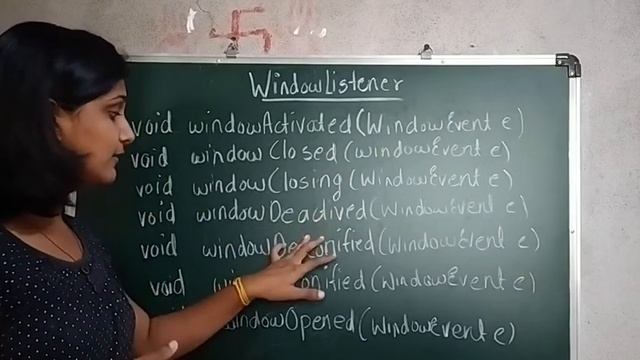 WindowListener
void windowActivated(WindowEvent e)
void windowClosed(windowEvent e)
void windowClosing(WindowEvent e)
void windowDeactived(WindowEvent e)
void windowDeiconified(WindowEvent e)
void (WindowEvent e)
windowOpened(WindowEvent e)